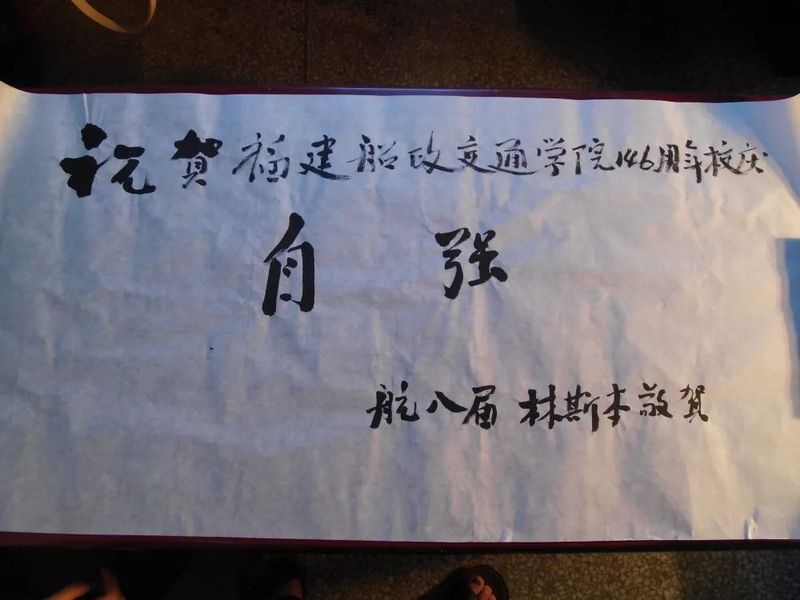 祝贺福建船政交通学院146周年校庆
自强
航八届 林斯本敬贺